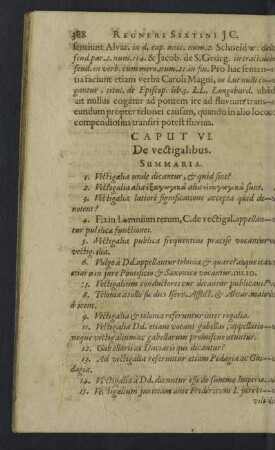 388 REGNERI SIXTINI JC.
sentiunt Alvar. in d. cap. unic. num. 2. Schneidw. de
feud. par. 2. num. 124. & Jacob. de S. Georg. in tract. de
feud. in verb. cum mero, num. 21. in fin. Pro hac senten-
tia faciunt etiam verba Caroli Magni, in l. ut nulli co-
gantur, titul. de Episcop. lib. 3. LL. Longobard. ubi
ut nullus cogatur ad pontem ire ad fluvium trans-
eundum propter telonei causam, quando in alio loco
compendiosius transiri potest fluvius.
CAPUT VI.
De vectigalibus.
SUMMARIA.
1. Vectigalia unde dicantur, & quid sint?
2. Vectigalia alia sunt.
3. Vectigalia latiori significatione accepta quid de-
notent?
4. Ex in l. omnium rerum, C. de vectigal. appellan-
tur publicæ functiones.
5. Vectigalia publica frequentius præcisè vocantur
vectigalia.
6. Vulgo à Dd. appellantur telonia & quare? atque ita
etiam in jure Pontificio & Saxonico vocantur. 9. 10.
7. Vectigalium conductores cur dicantur publicani
8. Telonia à tollo sic dici Isern. Afflict. & Alvar. malè
dicent.
9. Vectigalia & telonia referuntur inter regalia.
11. Vectigalia Dd. etiam vocant gabellas, appellatio-
neque vectigalium ac gabellarum promiscuè utuntur.
12. Gabellarii ac Daciarii qui dicantur?
13. Ad vectigalia referuntur etiam Pedagia ac Gui-
dagia.
14. Vectigalia à Dd. dicuntur esse de summo Imperio.
15. Vectigalium jus etiam ante Fridericum I.